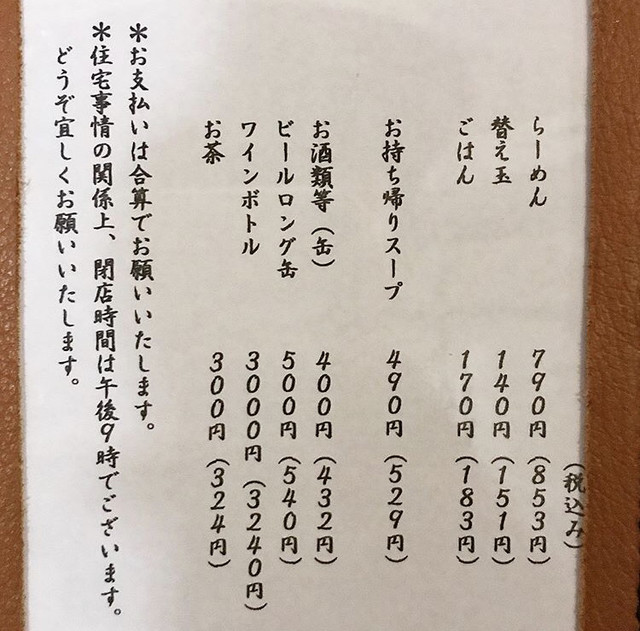 （税込み）
らーめん 790円（853円）
替え玉 140円（151円）
ごはん 170円（183円）
お持ち帰りスープ 490円（529円）
お酒類等（缶） 400円（432円）
ビールロング缶 500円（540円）
ワインボトル 3000円（3240円）
お茶 300円（324円）
＊お支払いは合算でお願いいたします。
＊住宅事情の関係上、閉店時間は午後9時でございます。
どうぞ宜しくお願いいたします。